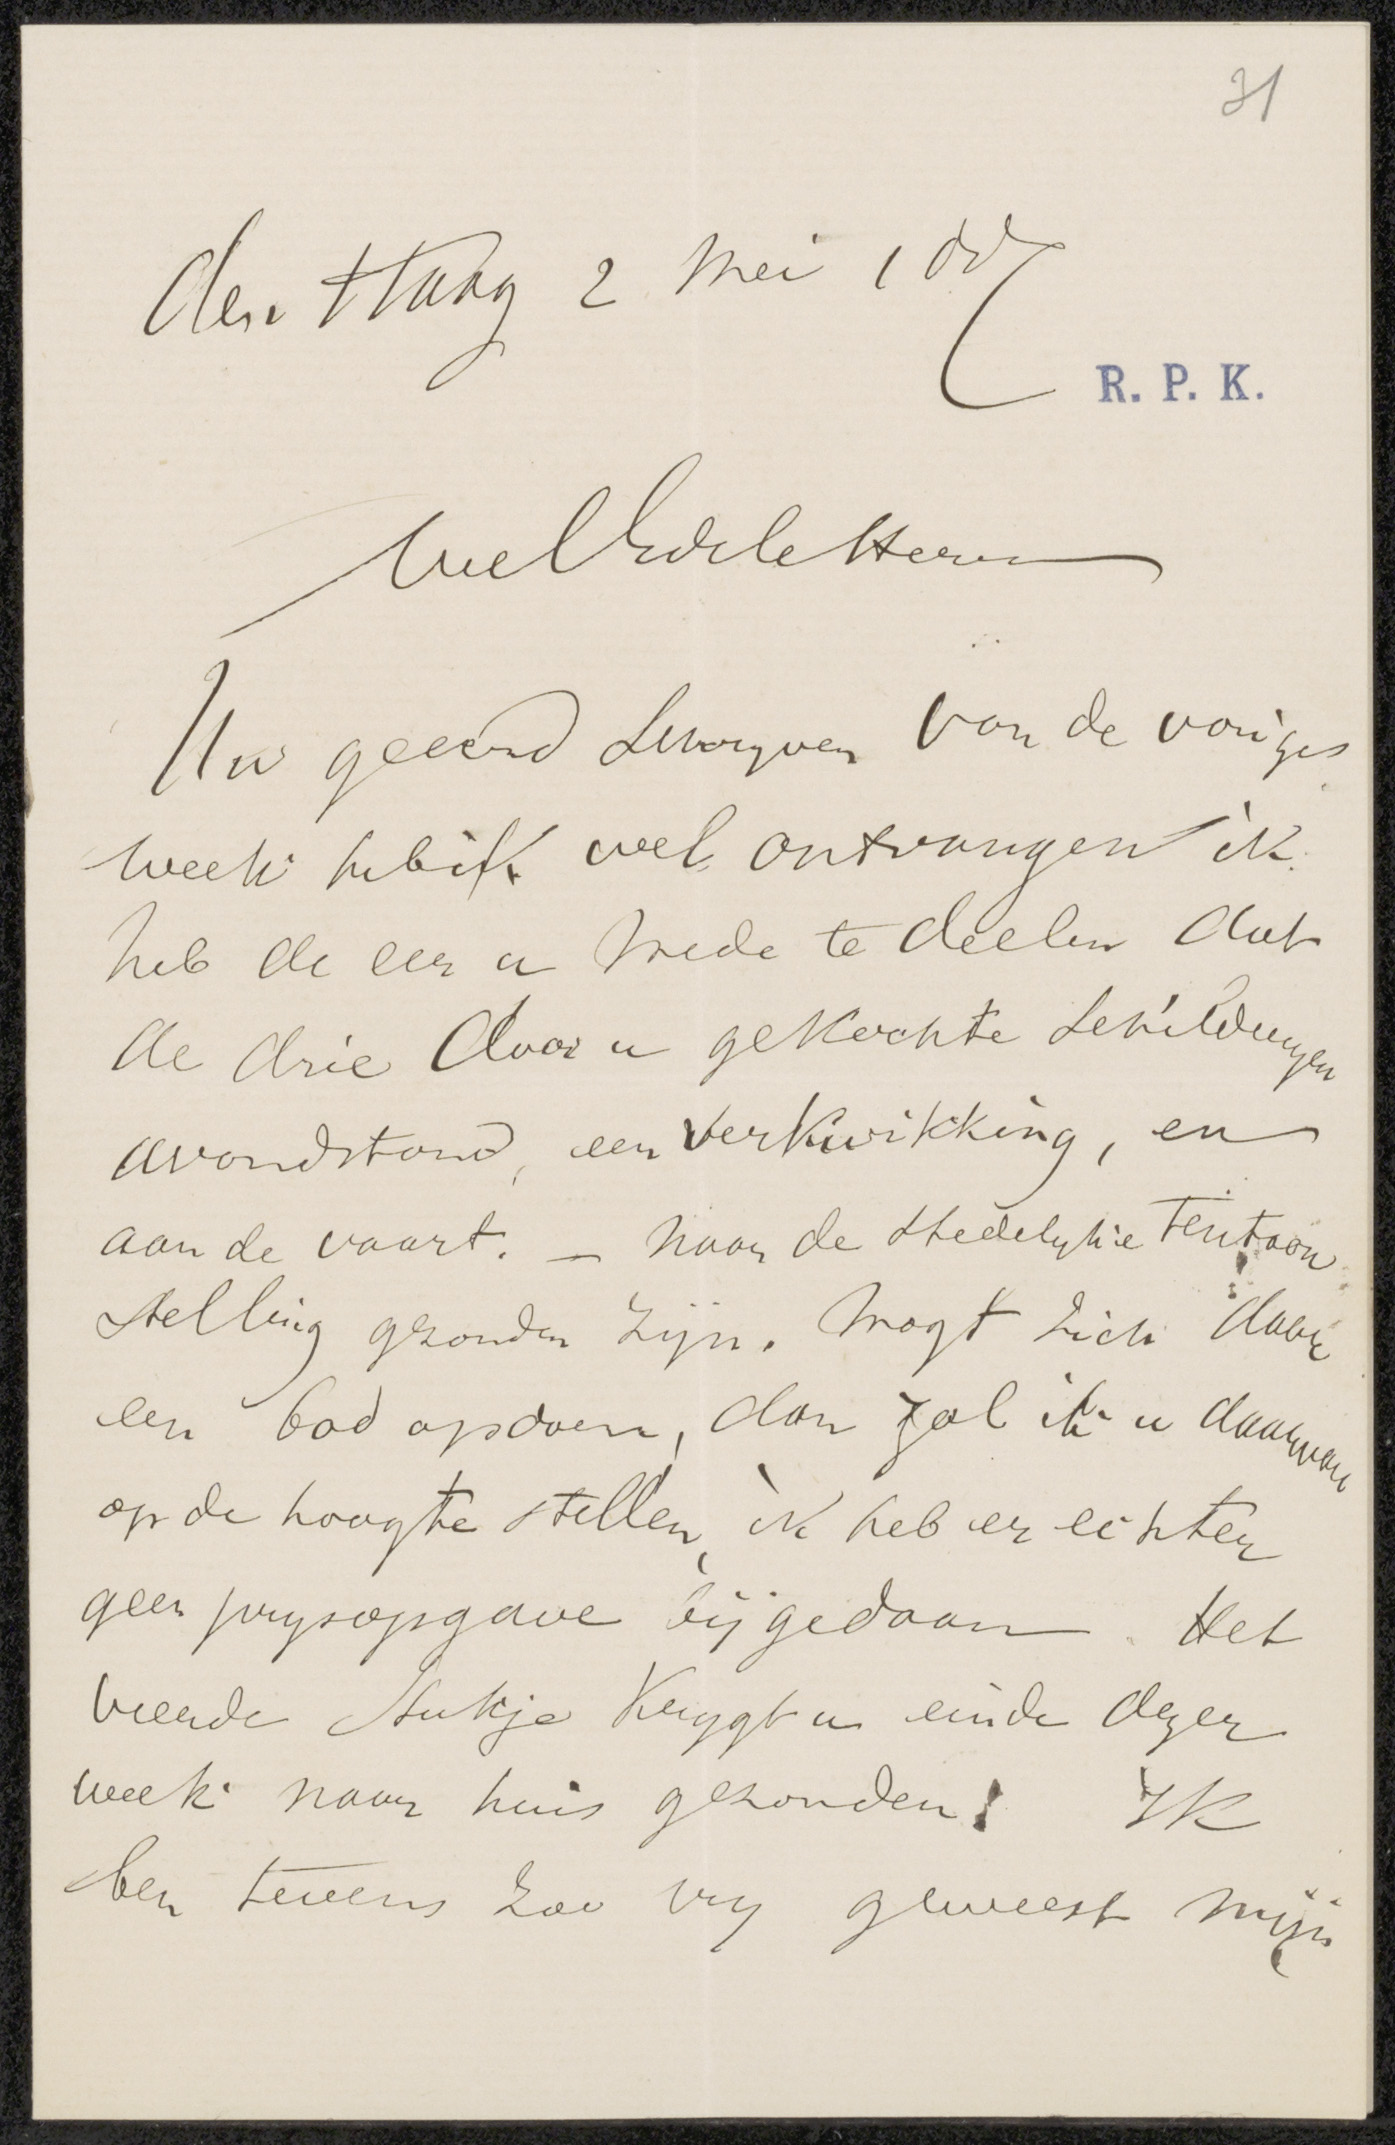 31
den Haag 2 Mei 1887
R. P. K.
WelEdele Heer
Uw geeerd schryven van de vorige
week heb ik wel ontvangen ik
heb de eer u mede te deelen dat
de drie door u gekochte schilderyen
avondstond, een verkwikking, en
aan de vaart. — naar de stedelyke Tentoon
stelling gezonden zijn. Mogt zich daar
een bod opdoen, dan zal ik u daarvan
op de hoogte stellen, ik heb er echter
geen prysopgave bij gedaan. Het
vierde stukje krygt u einde dezer
week naar huis gezonden! Ik
ben tevens zoo vry geweest mijn